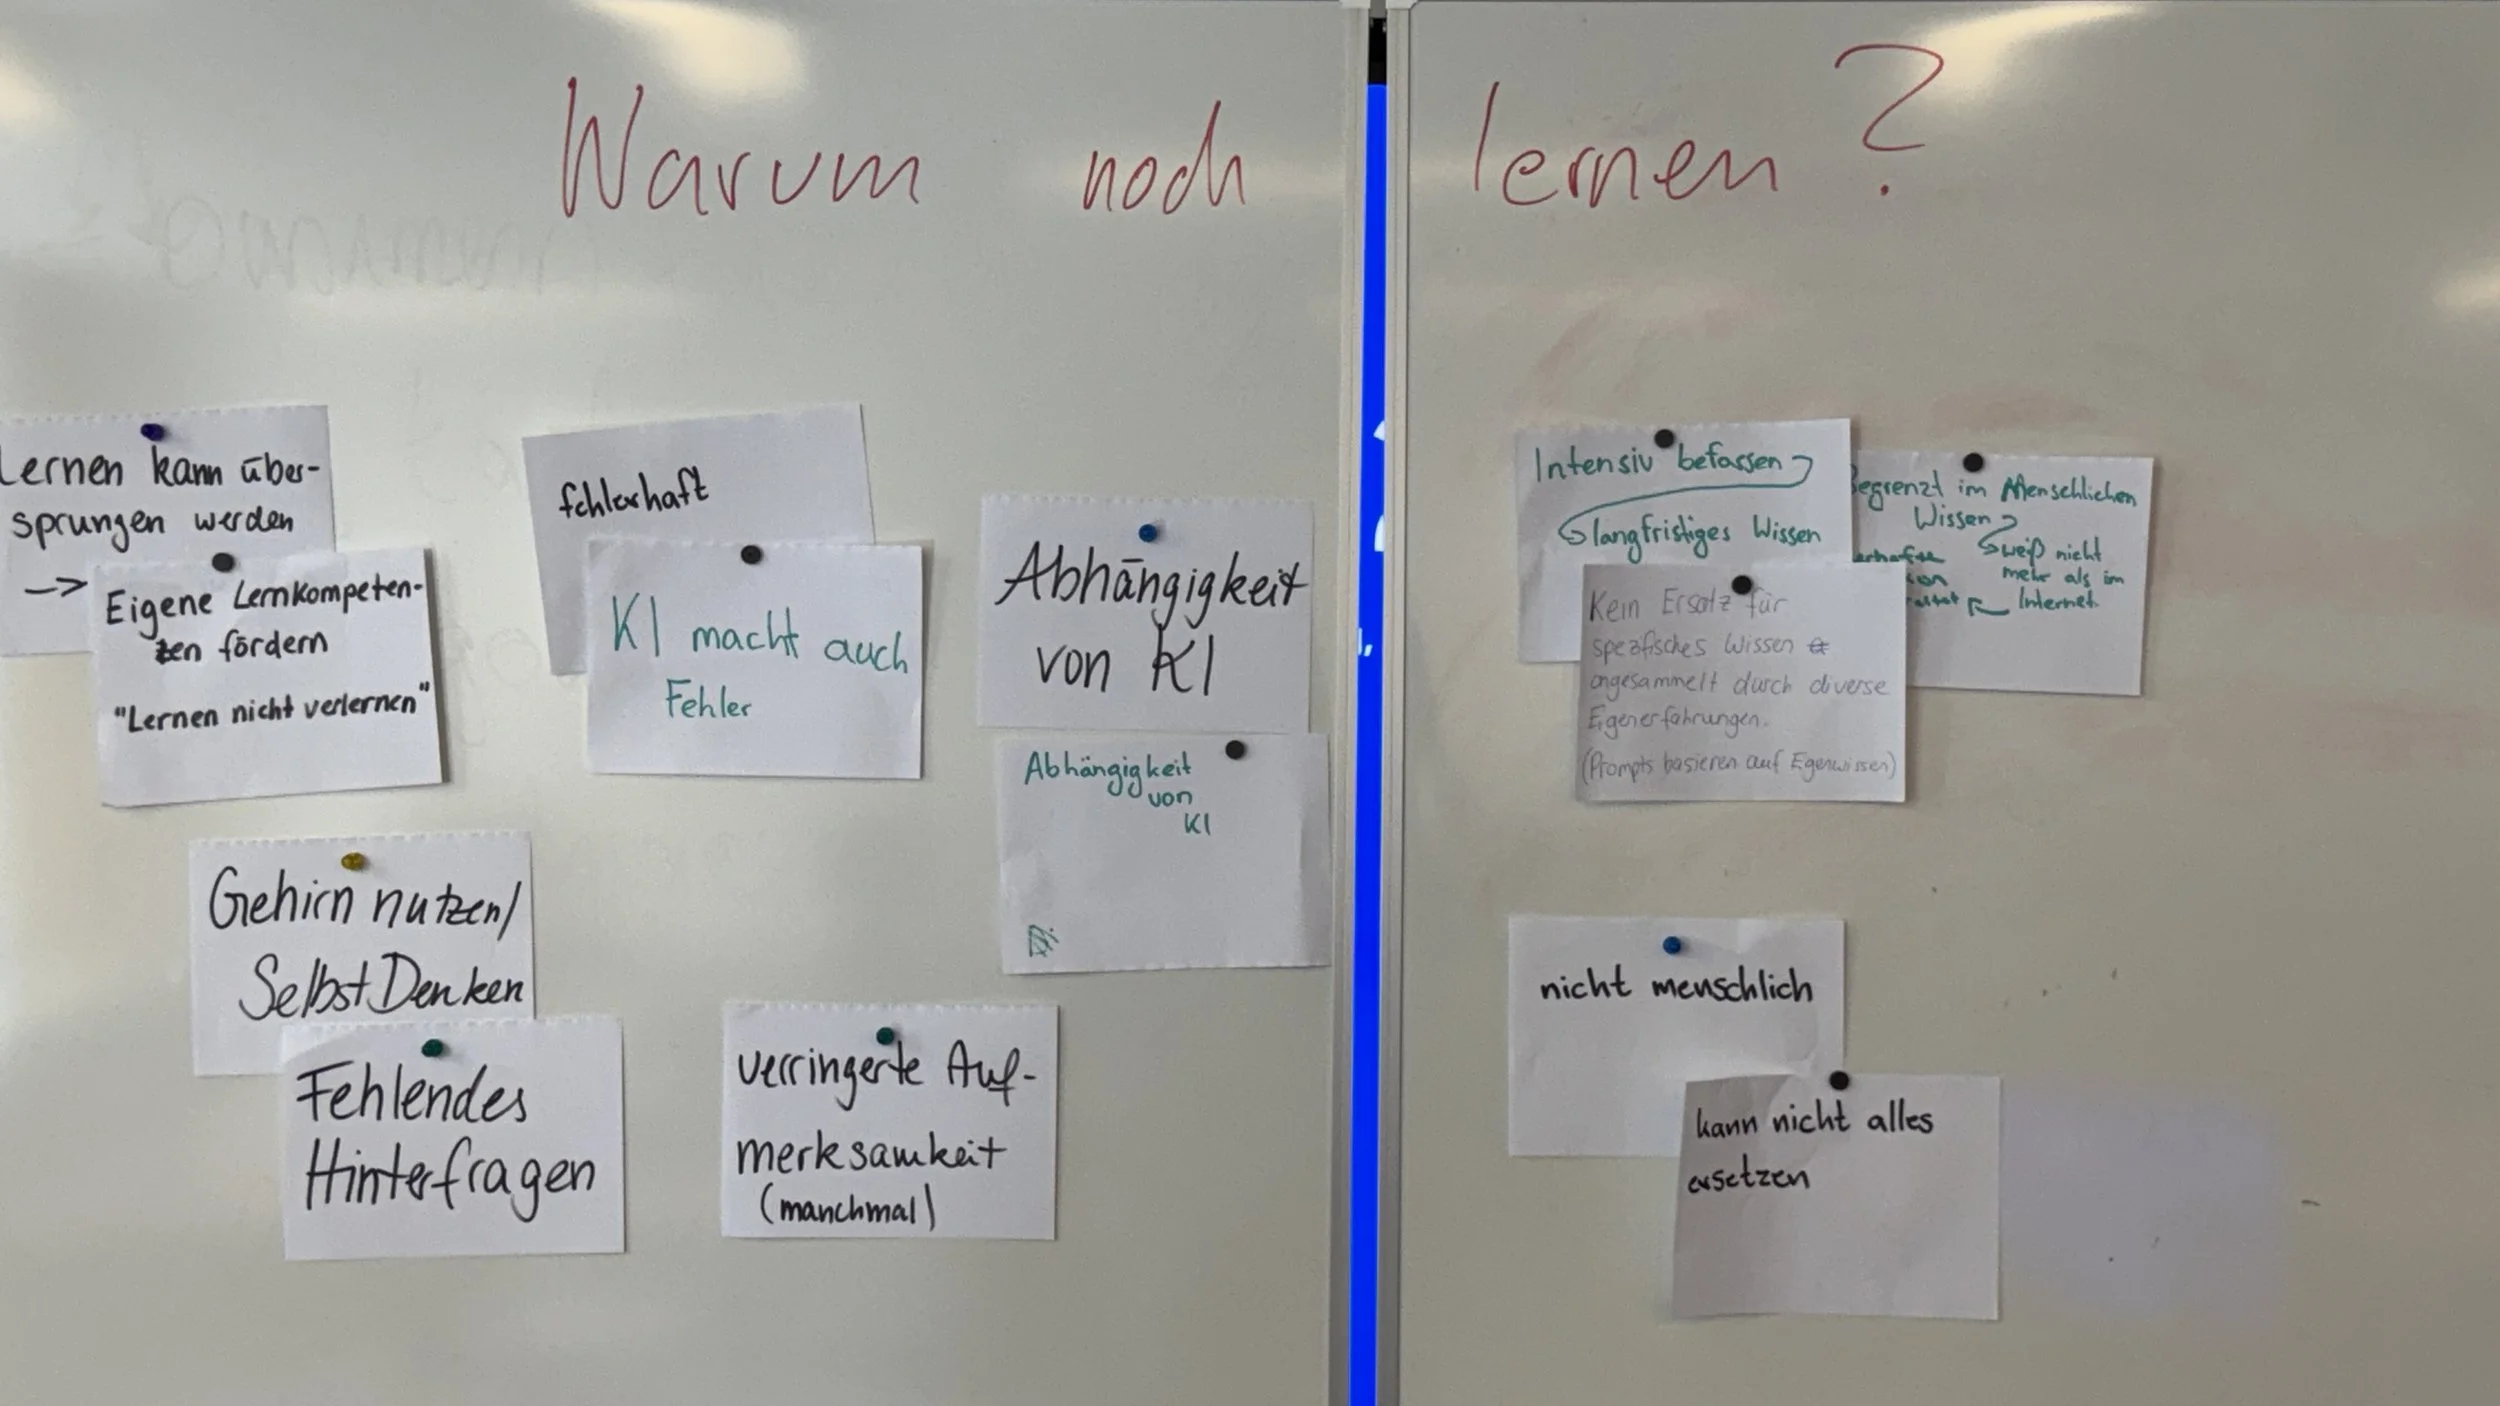 Warum noch lernen?
Lernen kann über-
sprungen werden
->
Eigene Lernkompeten-
zen fördern
"Lernen nicht verlernen"
fehlerhaft
KI macht auch
Fehler
Abhängigkeit
von KI
Abhängigkeit
von
KI
Gehirn nutzen/
Selbst Denken
Fehlendes
Hinterfragen
verringerte Auf-
merksamkeit
(manchmal)
Intensiv befassen
langfristiges Wissen
Begrenzt im Menschlichen
Wissen
weiß nicht
mehr als im
Internet
Kein Ersatz für
spezifisches Wissen
angesammelt durch diverse
Eigenerfahrungen.
(Prompts basieren auf Eigenwissen)
nicht menschlich
kann nicht alles
ersetzen